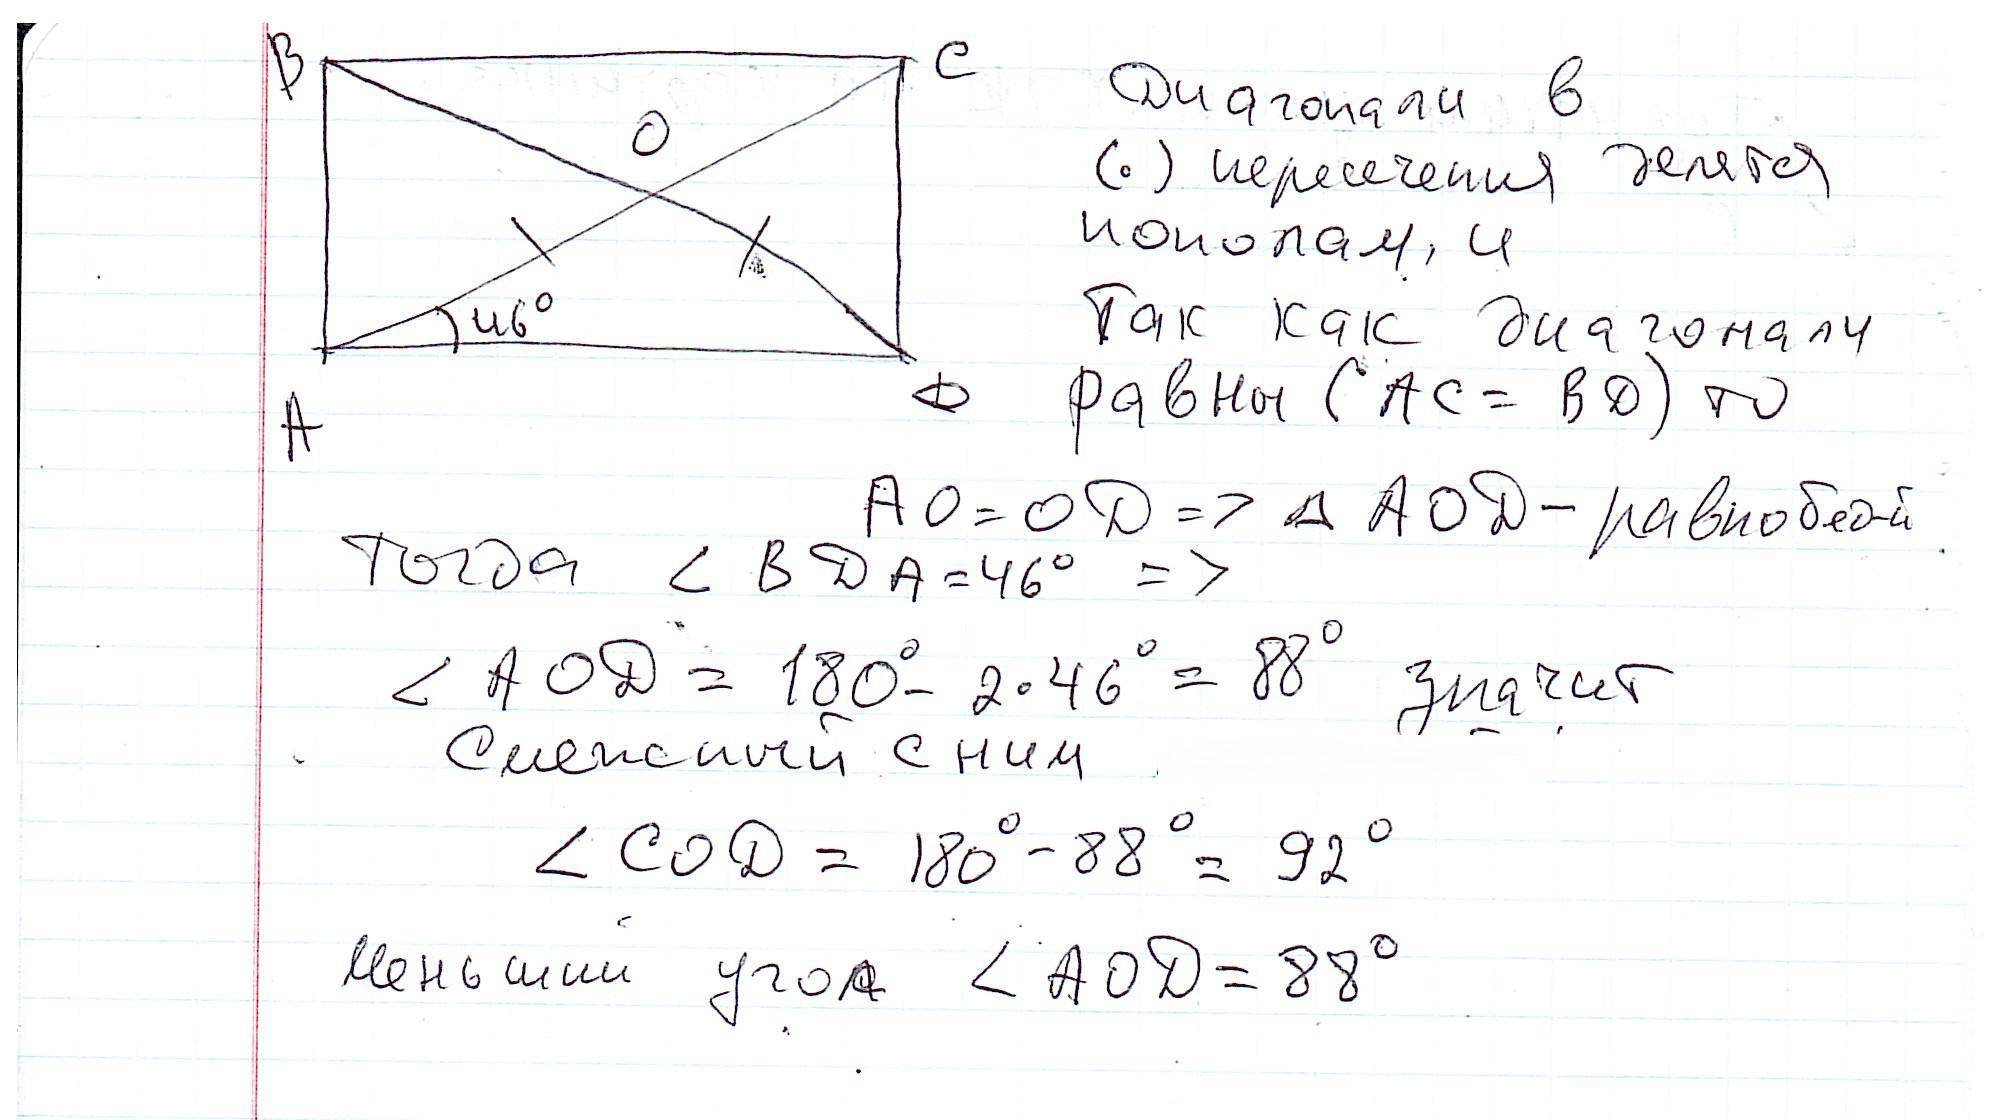 B
C
O
46°
A
D
Диагонали в
(·) пересечения делятся
пополам, и
Так как диагонали
равны (AC = BD) то
AO = OD => △ AOD - равнобед-й
Тогда < BDA = 46° =>
< AOD = 180° - 2·46° = 88° значит
Смежный с ним
< COD = 180° - 88° = 92°
Меньший угол < AOD = 88°